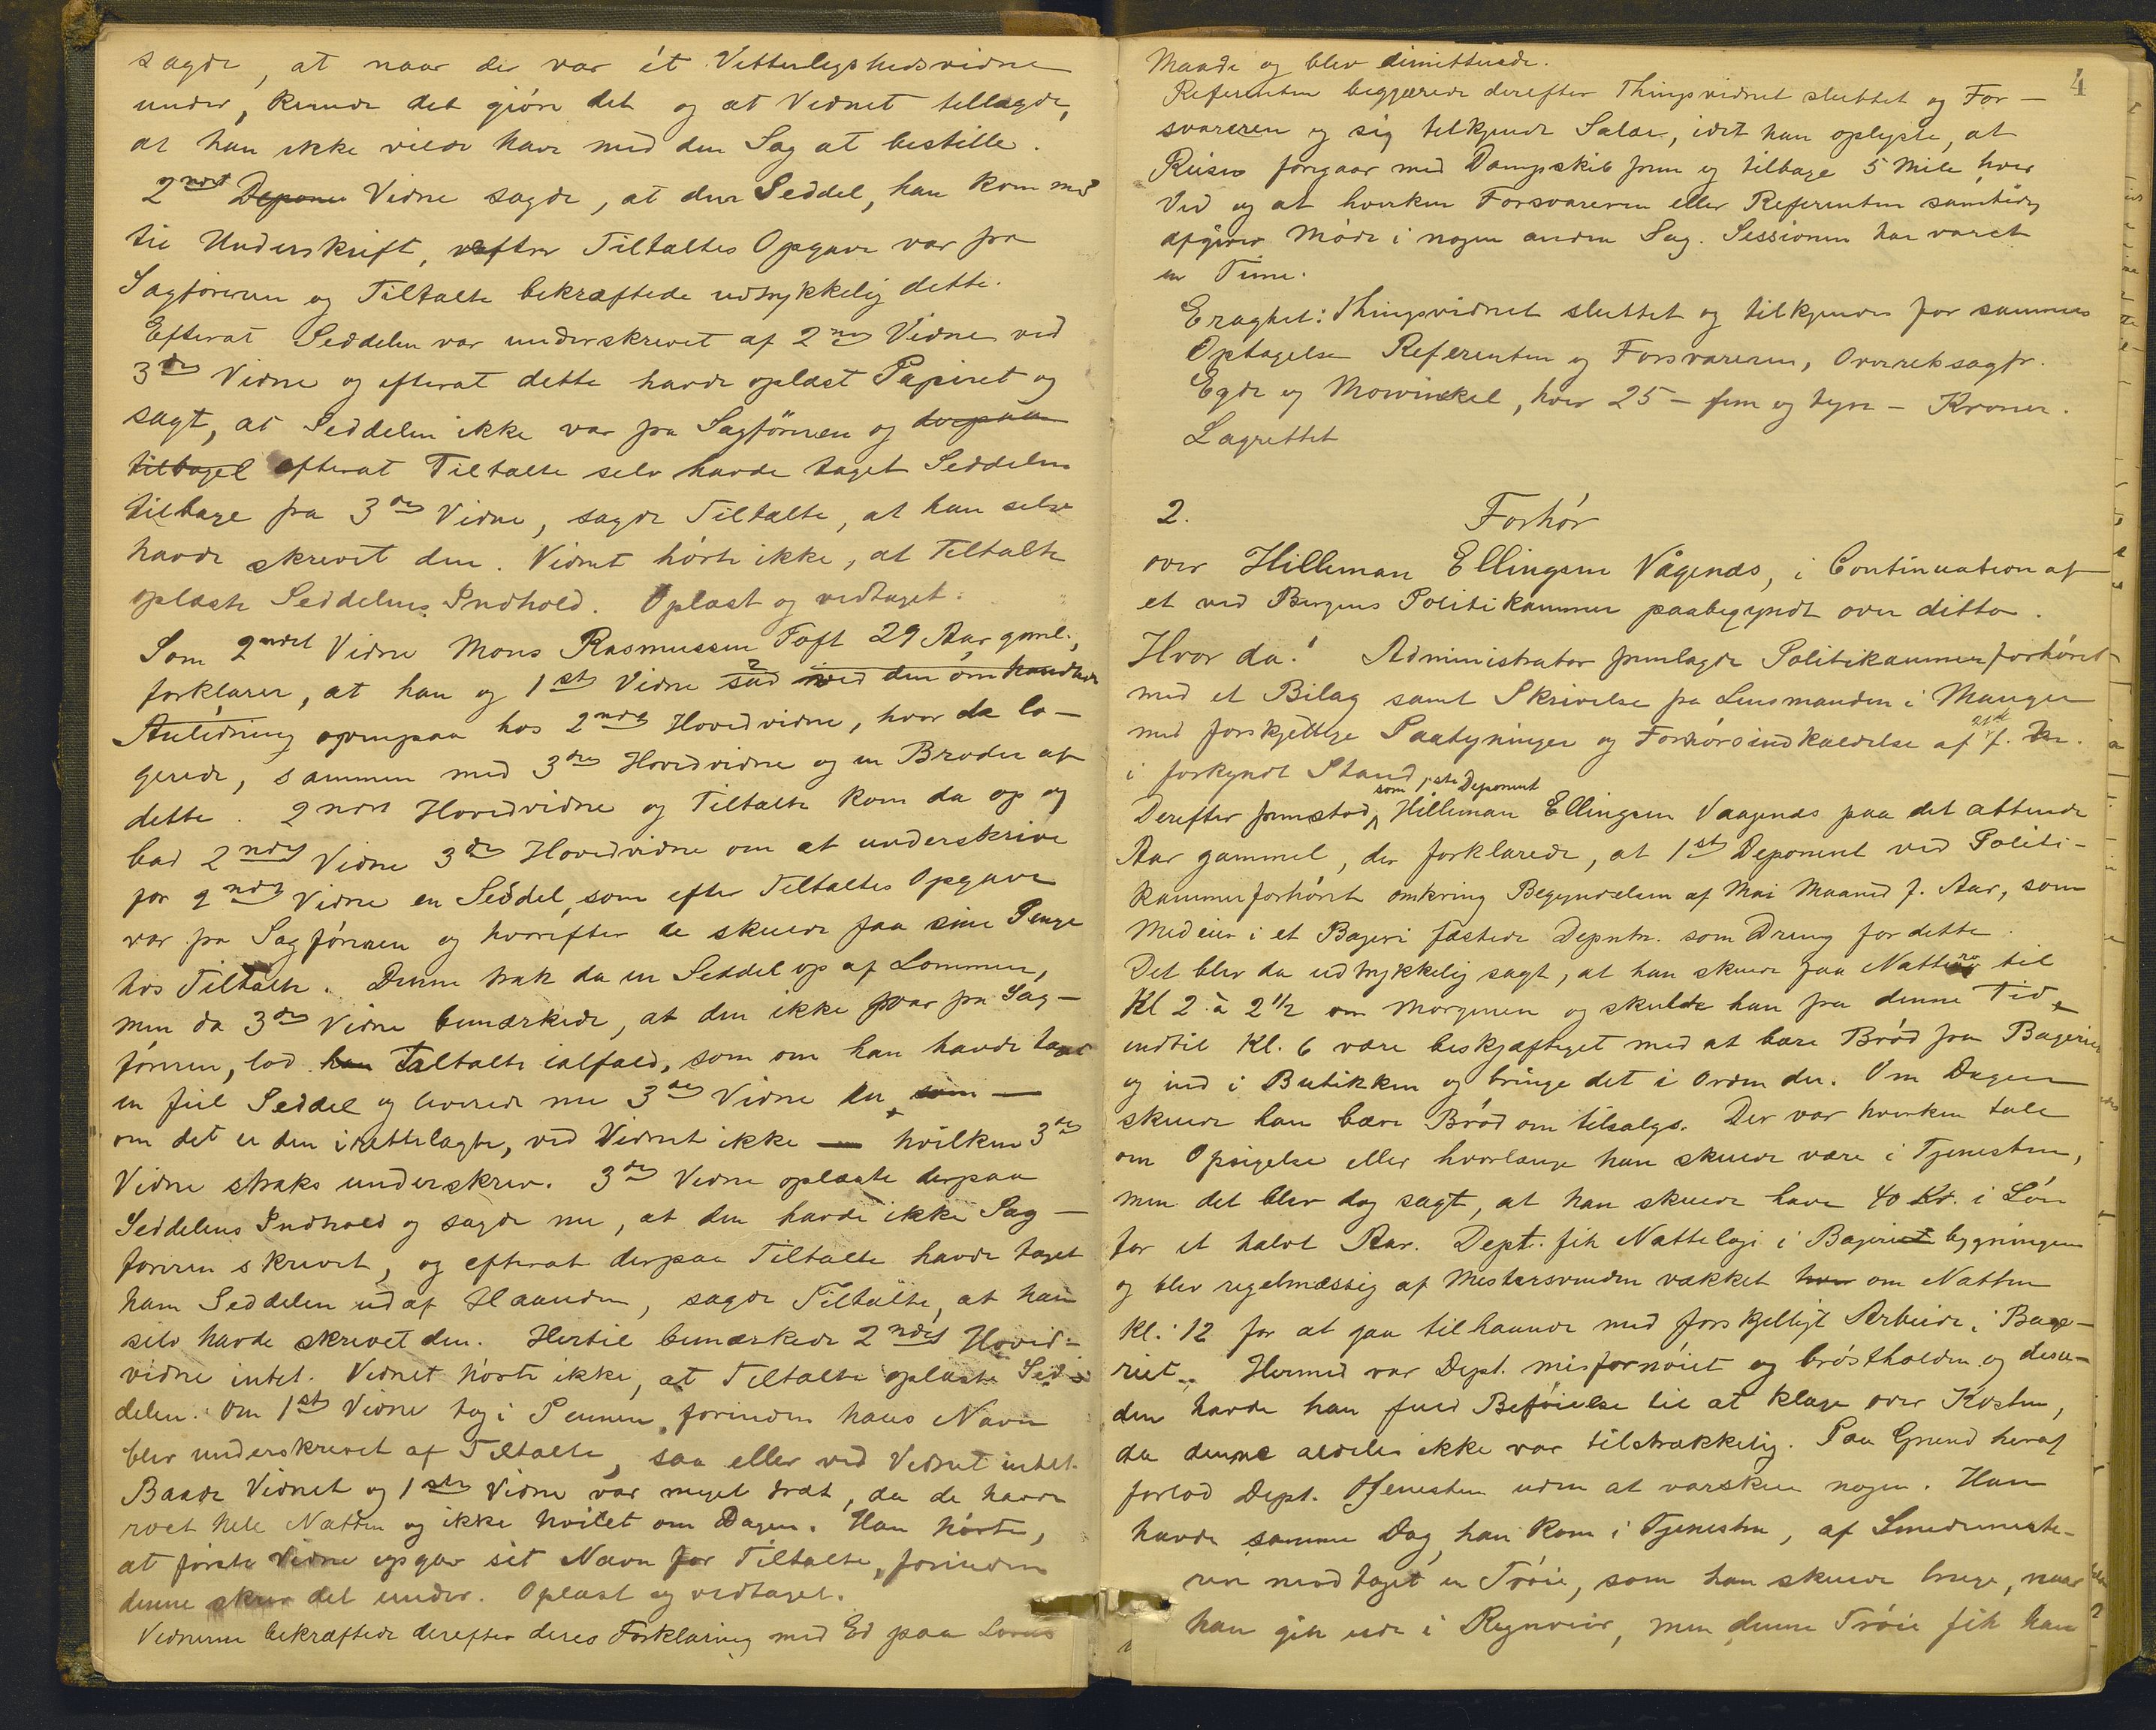 sagde, at naar der var ét Vitterlighedsvidne
under, kunde det gjöre det og at Vidnet tillagde,
at han ikke vilde have med den Sag at bestille.
2ndet Depone Vidne sagde, at den Seddel, han kom med
til Underskrift, efter Tiltaltes Opgave var fra
Sagföreren og Tiltalte bekræftede udtrykkelig dette.
Efterat Seddelen var underskrevet af 2nd Vidne ved
3die Vidne og efterat dette havde oplæst Papiret og
sagt, at Seddelen ikke var fra Sagföreren og derpaa
tilbagel efterat Tiltalte selv havde taget Seddelen
tilbage fra 3die Vidne, sagde Tiltalte, at han selv
havde skrevet den. Vidnet hörte ikke, at Tiltalte
oplæste Seddelens Indhold. Oplæst og vedtaget.
Som 2ndet Vidne Mons Rasmussen Toft 29 Aar gaml.,
forklarer, at han og 1ste Vidne sad ved den om handlede
Anledning ovenpaa hos 2ndet Hovedvidne, hvor de lo-
gerede, sammen med 3die Hovedvidne og en Broder af
dette. 2ndet Hovedvidne og Tiltalte kom da op og
bad 2ndet Vidne 3die Hovedvidne om at underskrive
for 2ndet Vidne en Seddel, som efter Tiltaltes Opgave
var fra Sagföreren og hvorefter de skulde faa sine Penge
hos Tiltalte. Denne trak da en Seddel op af Lommen,
men da 3die Vidne bemærkede, at den ikke var fra Sag-
föreren, lod han Tiltalte ialfald, som om han havde taget
en feil Seddel og leverede nu 3die Vidne en, som —
om det er den irettelagte, ved Vidnet ikke — hvilken 3die
Vidne straks underskrev. 3die Vidne oplæste derpaa
Seddelens Indhold og sagde nu, at den havde ikke Sag-
föreren skrevet, og efterat derpaa Tiltalte havde taget
ham Seddelen ud af Haanden, sagde Tiltalte, at han
selv havde skrevet den. Hertil bemærkede 2ndet Hoved-
vidne intet. Vidnet hörte ikke, at Tiltalte oplæste Sed-
delen. Om 1ste Vidne tog i Pennen, forinden hans Navn
blev underskrevet af Tiltalte, saa eller ved Vidnet intet.
Baade Vidnet og 1ste Vidne var meget træt, da de havde
roet hele Natten og ikke hvilet om Dagen. Han hörte,
at förste Vidne opgav sit Navn for Tiltalte, forinden
denne skrev det under. Oplæst og vedtaget.
Vidnerne bekræftede derefter deres Forklaring med Ed paa Lovens
4
Maade og blev dimitterede.
Referenten begjærede derefter Thingsvidnet sluttet og For-
svareren og sig tilkjendt Salær, idet han oplyste, at
Reisen foregaar med Dampskib frem og tilbage 5 Mile hver
Vei og at hverken Forsvareren eller Referenten samtidig
afgiver Möde i nogen anden Sag. Sessionen har varet
en Time.
Eragtet: Thingsvidnet sluttet og tilkjendes for sammes
Optagelse Referenten og Forsvareren, Overretssagfr.
Egde og Mowinckel, hver 25 - fem og tyve - Kroner.
Lagrettet
2. Forhör
over Hilleman Ellingsen Vågenæs, i Continuation af
et ved Bergens Politikammer paabegyndt over ditto.
Hvor da! Administrator fremlagde Politikammerforhöret
med et Bilag samt Skrivelse fra Lensmanden i Manger
med forskjellige Paategninger og Forhörsindkaldelse af 21de f. M.
i forkyndt Stand.
Derefter fremstod som 1ste Deponent Hilleman Ellingsen Vaagenæs paa det attende
Aar gammel, der forklarede, at 1ste Deponent ved Politi-
kammerforhöret omkring Begyndelsen af Mai Maaned f. Aar, som
Medeier i et Bageri fæstede Depntn. som Dreng for dette.
Det blev da udtrykkelig sagt, at han skulde faa Nattero til
Kl 2 à 2 1/2 om Morgenen og skulde han fra denne Tid
indtil Kl. 6 være beskjæftiget med at bære Bröd fra Bageriet
og ind i Butikken og bringe det i Orden der. Om Dagen
skulde han bære Bröd om tilsalgs. Der var hverken tale
om Opsigelse eller hvorlænge han skulde være i Tjenesten,
men det blev dog sagt, at han skulde have 40 Kr. i Lön
for et halvt Aar. Dept. fik Nattelogi i Bageriet bygningen
og blev regelmæssig af Mestersvenden vækket hver om Natten
Kl. 12 for at gaa tilhaande med forskjelligt Arbeide i Bage-
riet. Hermed var Dept. misfornöiet og bröstholden og desu-
den havde han fuld Beföielse til at klage over Kosten,
da denne aldeles ikke var tilstrækkelig. Paa Grund heraf
forlod Dept. Tjenesten uden at varskue nogen. Han
havde samme Dag han kom i Tjenesten, af Smedemeste-
ren modtaget en Tröie, som han skulde bruge, naar
han gik ude i Regnveir, men denne Tröie fik han